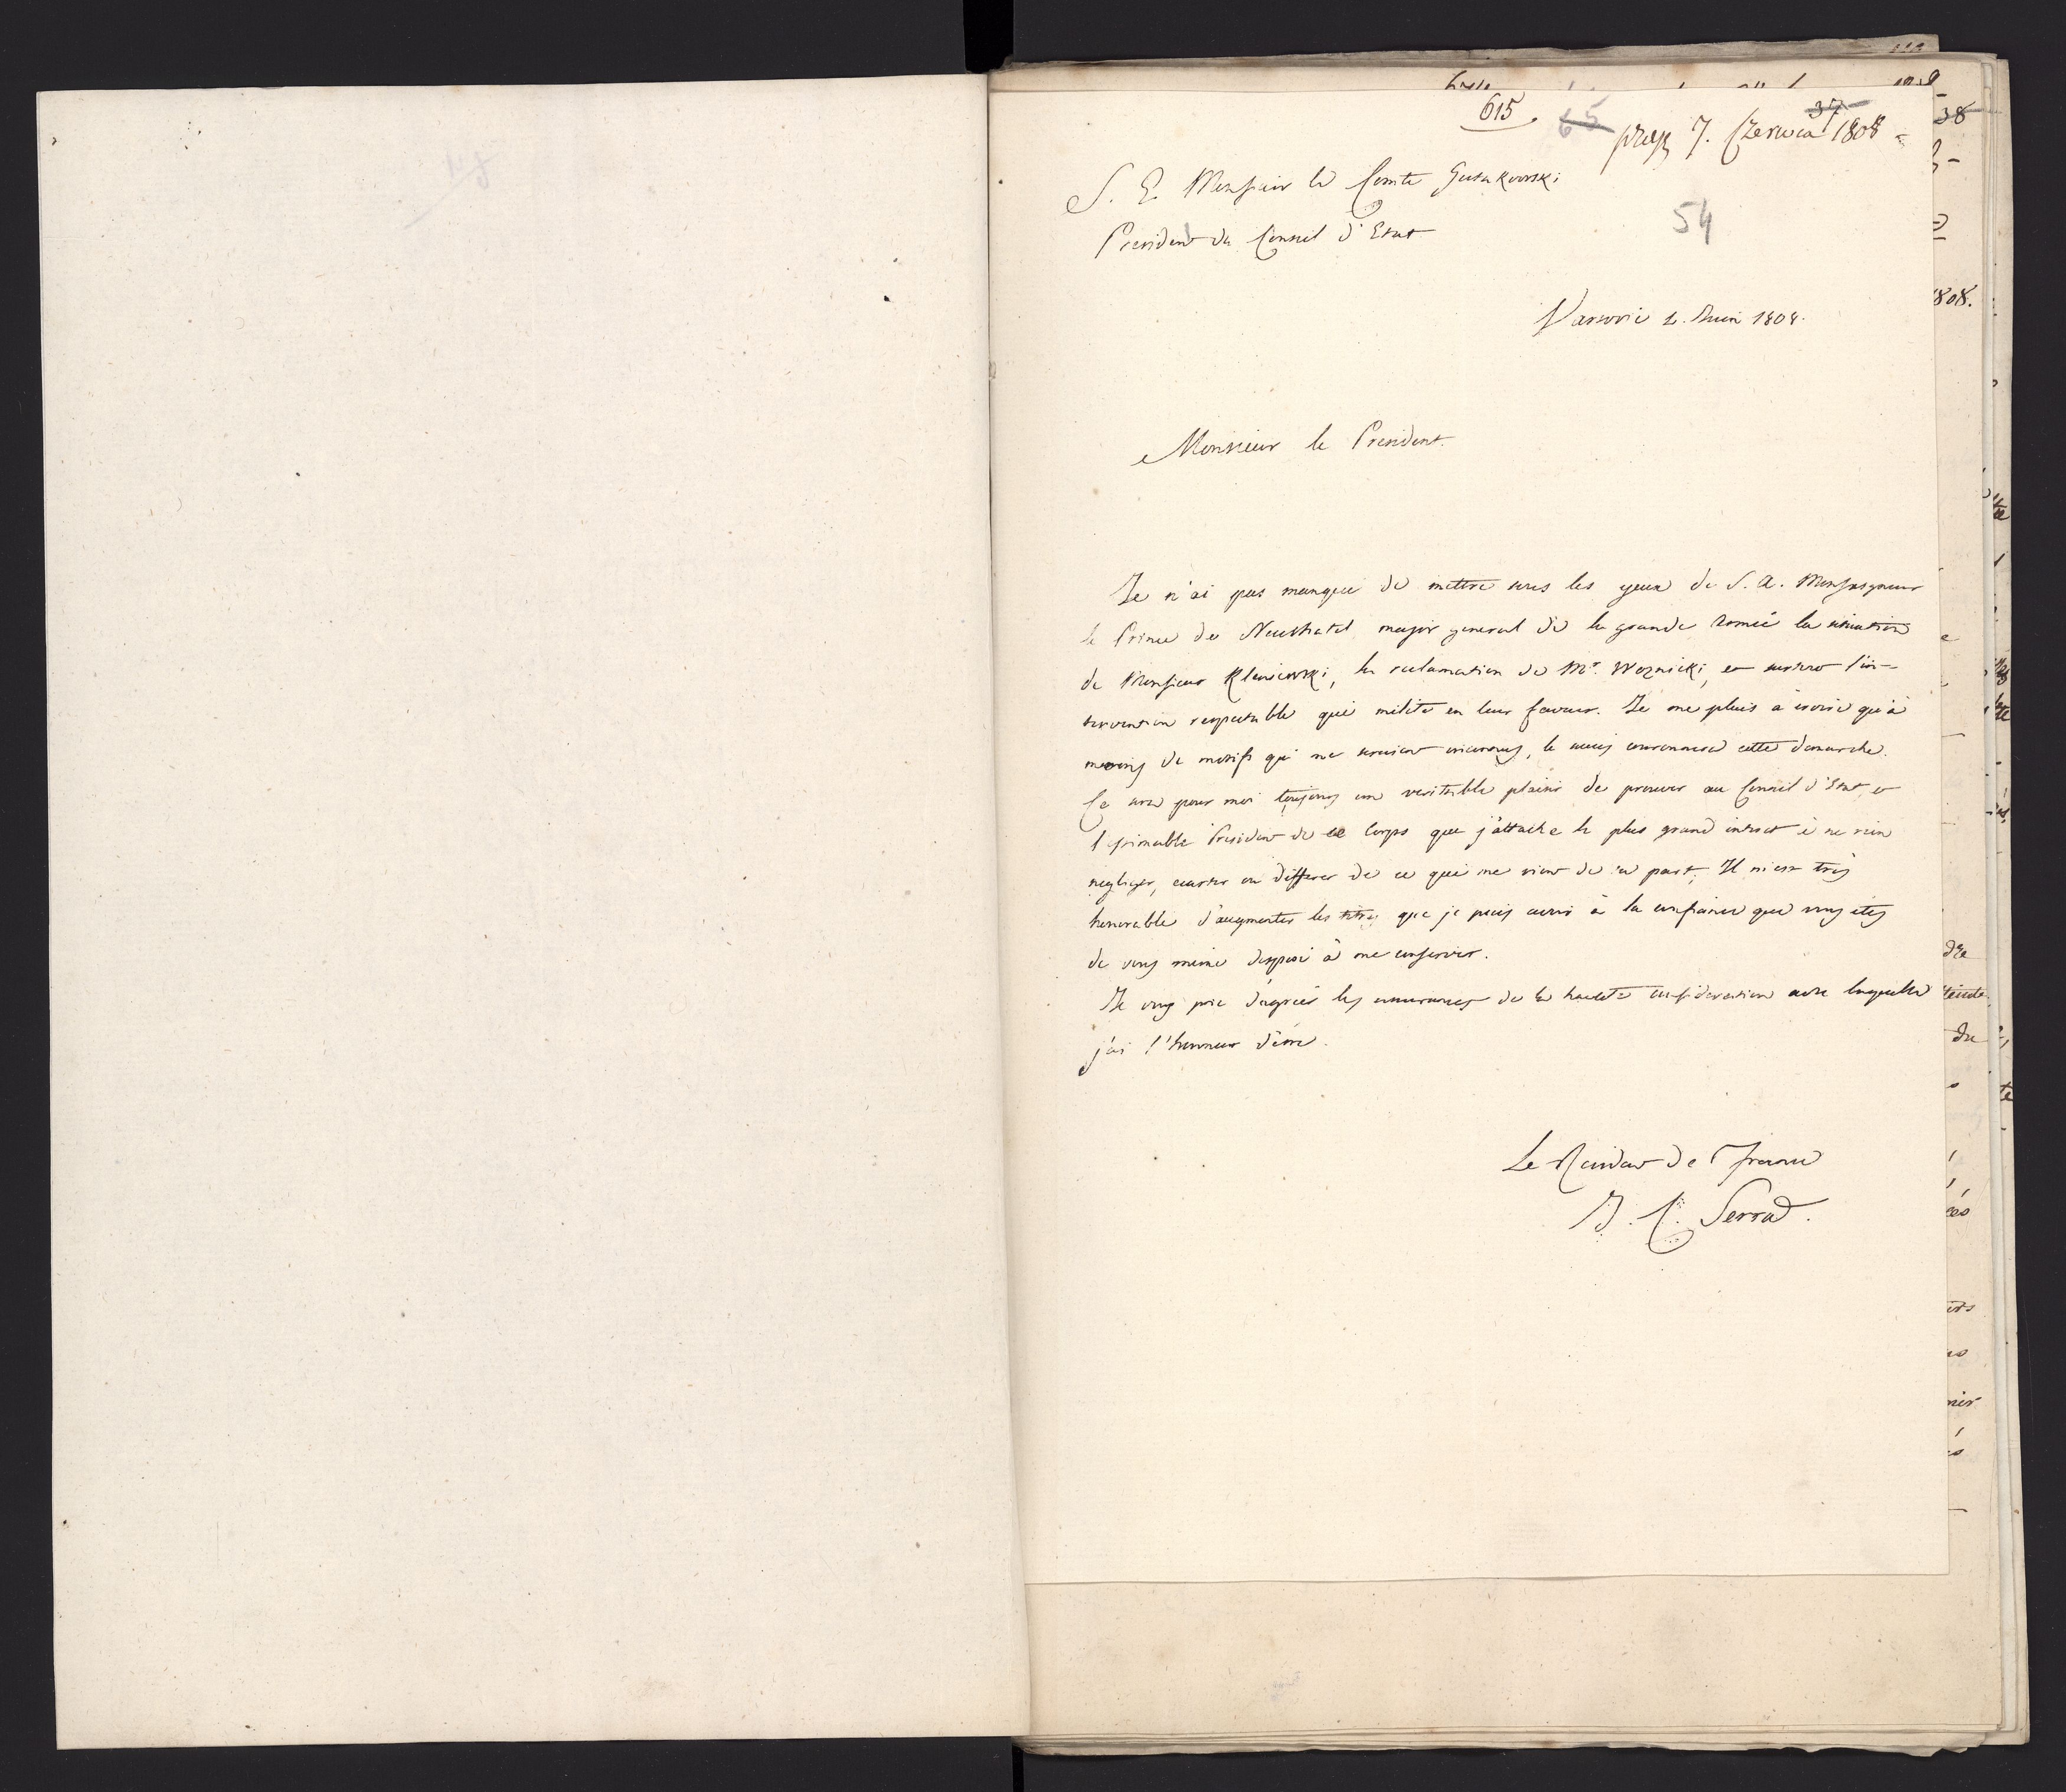 615. 65 37
54
S. E. Monsieur le Comte Gutakowski
President du Conseil d'Etat
Varsovie 2. Juin 1808.
Monsieur le President.
Je n'ai pas manqué de mettre sous les yeux de S. A. Monseigneur
le Prince de Neuchatel major general de la grande Armée la situation
de Monsieur, la reclamation de Mr. Woznicki, et surtout l'in-
tervention respectable qui milite en leur faveur. Je me plais à croire qu'à
moins de motifs qui me seroient inconnus, le succès couronnera cette demarche.
Ce sera pour moi toujours un veritable plaisir de prouver au Conseil d'Etat, et
l'estimable President de ce Corps que j'attache le plus grand interet à ne rien
negliger, ou differer de ce qui me vient de sa part; Il m'est très
honorable d'augmenter les titres que je puis avoir à la confiance que vous êtes
de vous même disposé à me conserver.
Je vous prie d'agréer les assurances de la haute consideration avec laquelle
j'ai l'honneur d'être.
Le Resident de France
J. C. Serra.
38
1808.